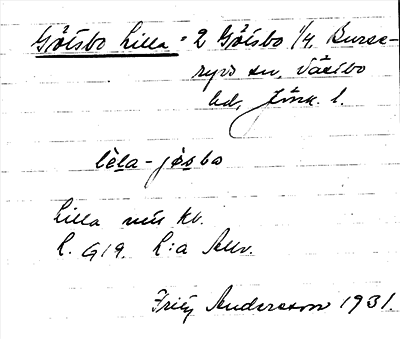 Götsbo Lilla = 2 Götsbo 1/4. Burse-
ryds sn, Västbo
hd, Jönk. l.
lèla-jøsbo
Lilla
l. G19. L:a
Fritz Andersson 1931.